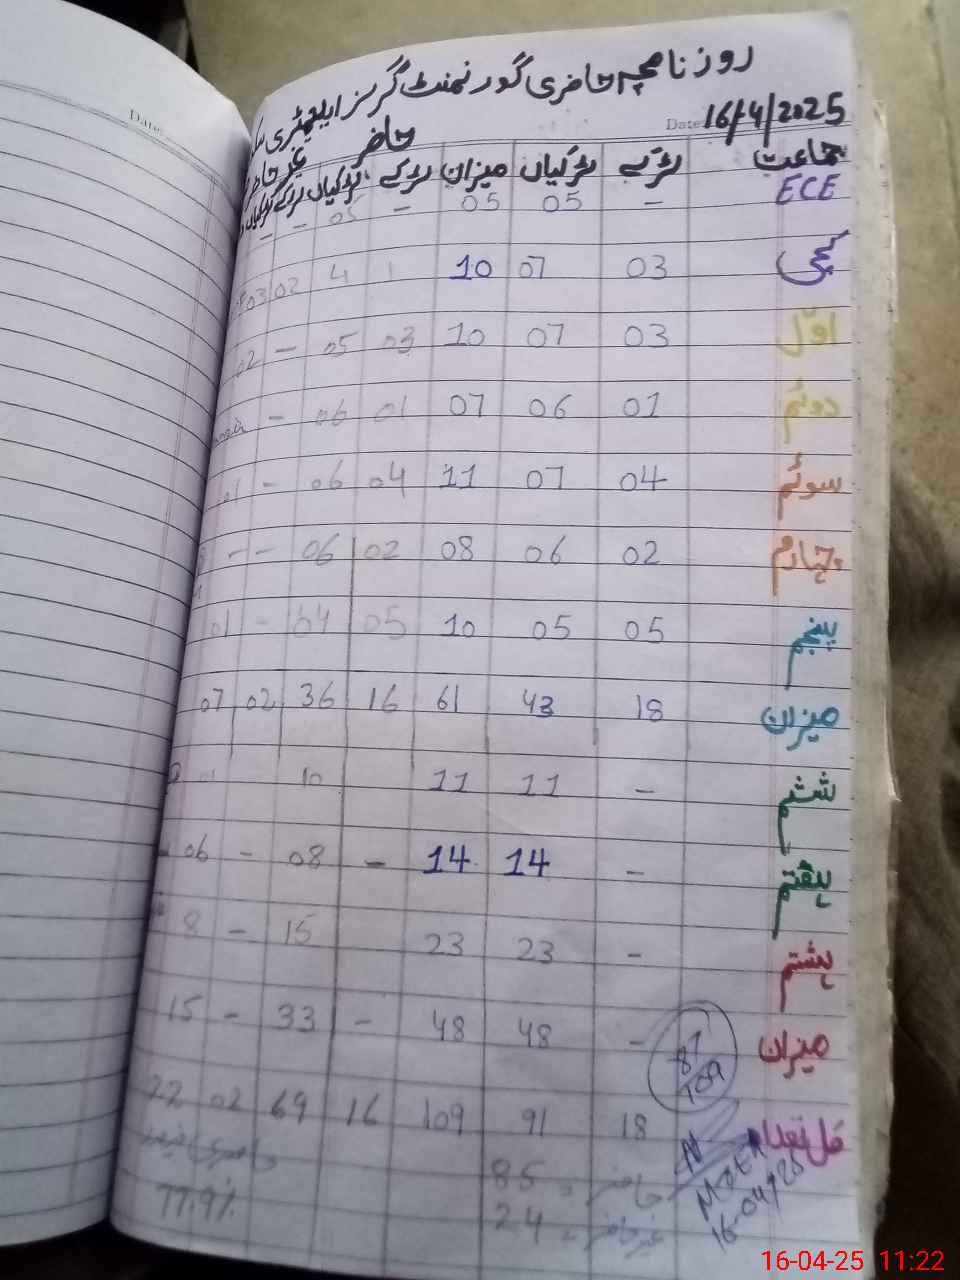 روزنامچہ حاضری گورنمنٹ گرلز ایلیمنٹری
Date:
Date 16/4/2025
حاضر غیر حاضر
جماعت لڑکے لڑکیاں میزان لڑکے لڑکیاں لڑکے لڑکیاں
ECE - 05 05 - 05 - -
کچی 03 07 10 1 4 02 03
اول 03 07 10 03 05 - 02
دوئم 01 06 07 01 06 -
سوئم 04 07 11 04 06 - 01
چہارم 02 06 08 02 06 - -
پنجم 05 05 10 05 04 - 01
میزان 18 43 61 16 36 02 07
ششم - 11 11 10 - 01
ہفتم - 14 14 - 08 - 06
ہشتم - 23 23 15 - 8
میزان - 48 48 - 33 - 15
87/109
کل تعداد 18 91 109 16 69 02 22
حاضر = 85
غیر حاضر = 24
77.9%
MOEN
16-04-25
16-04-25 11:22